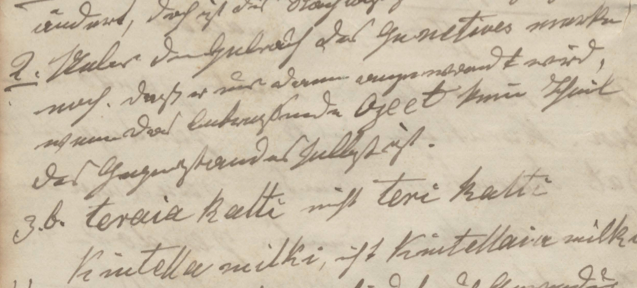 ändert, doch ist das
2. Ueber den Gebrauch des Genetives merke
noch, daß er nur dann angewandt wird,
wenn das betreffende Ojeet kein Theil
des Gegenstandes selbst ist.
z.b. teraia katti nicht teri katti
Kintella milki, ist Kintellaia milki